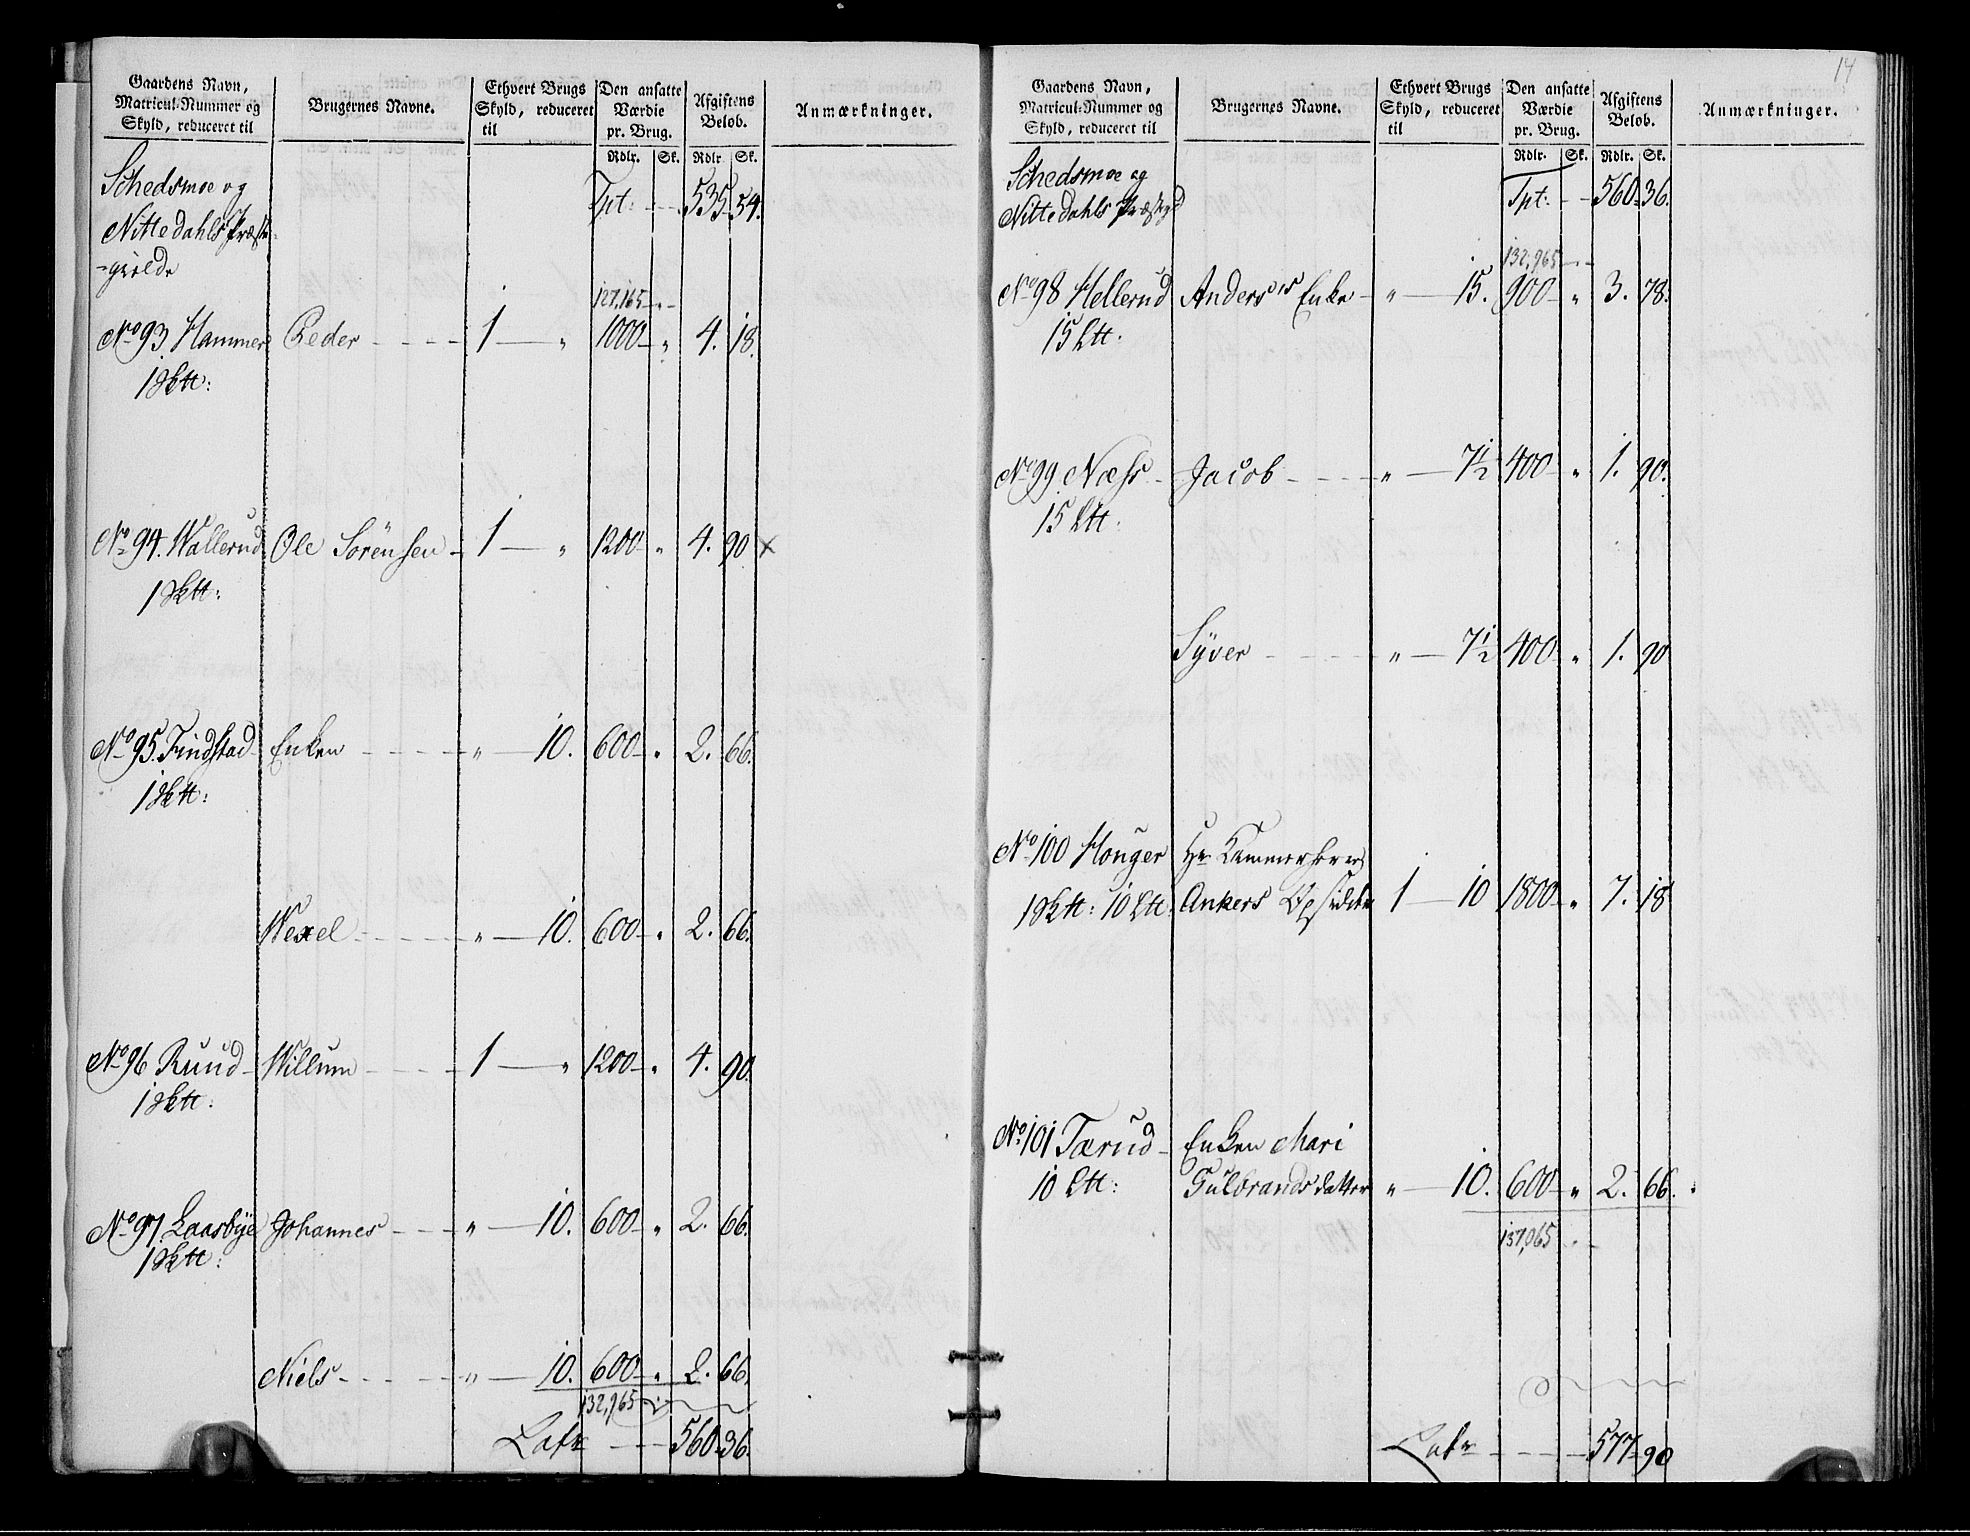 Gaardens Navn, Matricul-Nummer og Skyld, reduceret til | Brugernes Navne. | Ethvert Brugs Skyld, reduceret til | Den ansatte Værdie pr. Brug. | Afgiftens Beløb. | Anmærkninger.
Rdlr. | Sk. | Rdlr. | Sk.
Schedsmoe og Tpt: - - 535 - 54.
Nittedahls Præste-
-gields
127,165 - " -
No 93. Hammer Peder - - - - 1 — " 1000 - " 4. 18.
1 Sktt:
No 94. Wallerud Ole Sörensen - 1 — " 1200 - " 4. 90 x
1 Sktt:
No 95. Findstad Enken - - - - " — 10. 600 - " 2. 66.
1 Sktt:
Wexel - - - - " — 10. 600 - " 2. 66.
No 96 Ruud - Willum - - - - 1 — " 1200 - " 4. 90.
1 Sktt:
No 97. Laasbye Johannes - - - " — 10. 600 - " 2. 66.
1 Sktt:
Niels - - - - " — 10. 600 - " 2. 66.
132,965 -
Latr - - 560 - 36.
14
Gaardens Navn, Matricul-Nummer og Skyld, reduceret til | Brugernes Navne. | Ethvert Brugs Skyld, reduceret til | Den ansatte Værdie pr. Brug. | Afgiftens Beløb. | Anmærkninger.
Rdlr. | Sk. | Rdlr. | Sk.
Schedsmoe og Tpt: - - 560 - 36.
Nittedahls Præstegd
132,965 - " -
No 98 Hellerud Anders's Enke - " — 15. 900 - " 3. 78.
15 Ltt.
No 99 Næss - Jacob - - - - " — 7½ 400 - " 1. 90.
15 Ltt:
Syver - - - - " — 7½ 400 - " 1. 90
No 100 Houger Hr Kammerherre
1 Sktt: 10 Ltt. Ankers Opsidder 1 — 10 1800 - " 7. 18
No 101 Tærud - Enken Mari
10 Ltt: Gulbrandsdatter " — 10. 600 - " 2. 66.
137,065 - " -
Latr - - - - 577 - 90